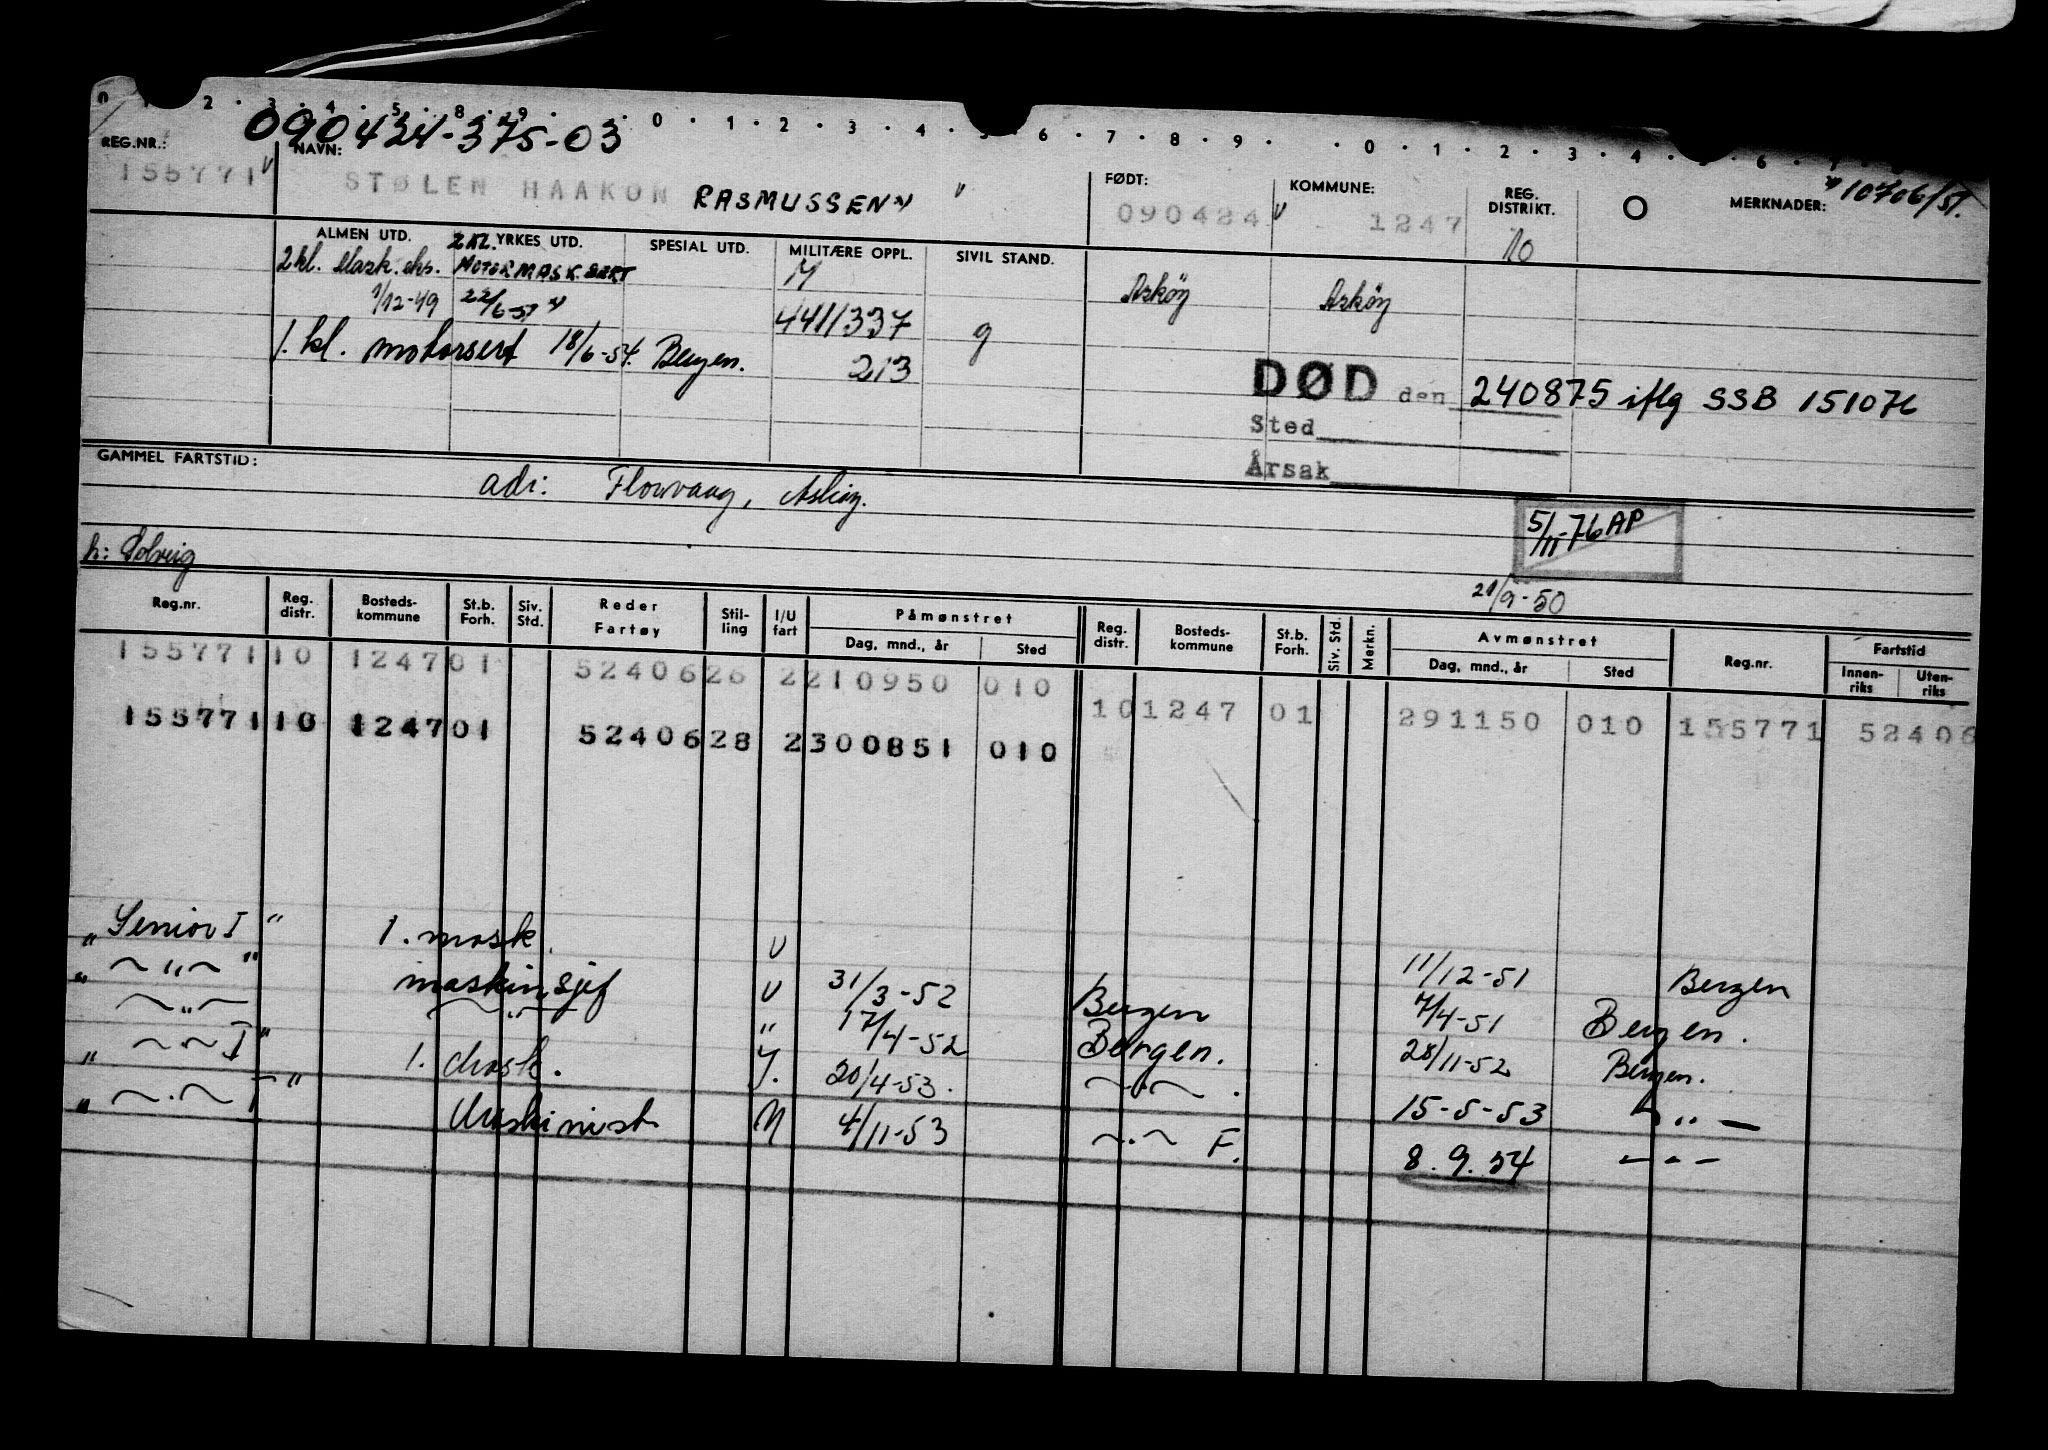 0 1 2 · 3 · 4 · 5 · 8 · 9 · · 0 · 1 · 2 · 3 · 4 · 5 · 6 · 7 · 8 · 9 · · 0 · 1 · 2 · 3 · 4 · 6 · 7
090424-375-03
REG.NR.: NAVN: FØDT: KOMMUNE: REG. DISTRIKT. O MERKNADER: 10706/51.
155771 STØLEN HAAKON RASMUSSEN 090424 1247 10
ALMEN UTD. 2KL. YRKES UTD. SPESIAL UTD. MILITÆRE OPPL. SIVIL STAND.
2kl. Mask. eks. MOTORMASK.SERT M
1/12-49 22/6-51 441/337 g Askøy Askøy
1. kl. motorsert 18/6-54. Bergen. 213
DØD den 240875 iflg SSB 151076
Sted
Årsak
GAMMEL FARTSTID:
adr: Florvaag, Askøy.
5/11-76 AP
h: Solveig
21/9-50
Reg.nr. Reg. distr. Bosteds-kommune St.b. Forh. Siv. Std. Reder Fartøy Stil-ling I/U fart Påmønstret Reg. distr. Bosteds-kommune St.b. Forh. Siv. Std. Merkn. Avmønstret Reg.nr. Fartstid
Dag, mnd., år Sted Dag, mnd., år Sted Innen-riks Uten-riks
155771 10 1247 01 52406 26 2 210950 010 10 1247 01 291150 010 155771 52406
155771 10 1247 01 52406 28 2 300851 010
"Senior I" 1. mask. U 11/12-51 Bergen
" ~ " ~ " maskinsjef U 31/3-52 Bergen 7/4-51 Bergen.
~ " ~ ~ " ~ " 17/4-52 Bergen. 28/11-52 Bergen.
" ~ " ~ I" 1. Mask. 20/4-53. ~ " ~ . 15-5-53 ~ " —
" ~ · ~ I" Maskinist 4/11-53 ~ · ~ F. 8.9.54 — " —